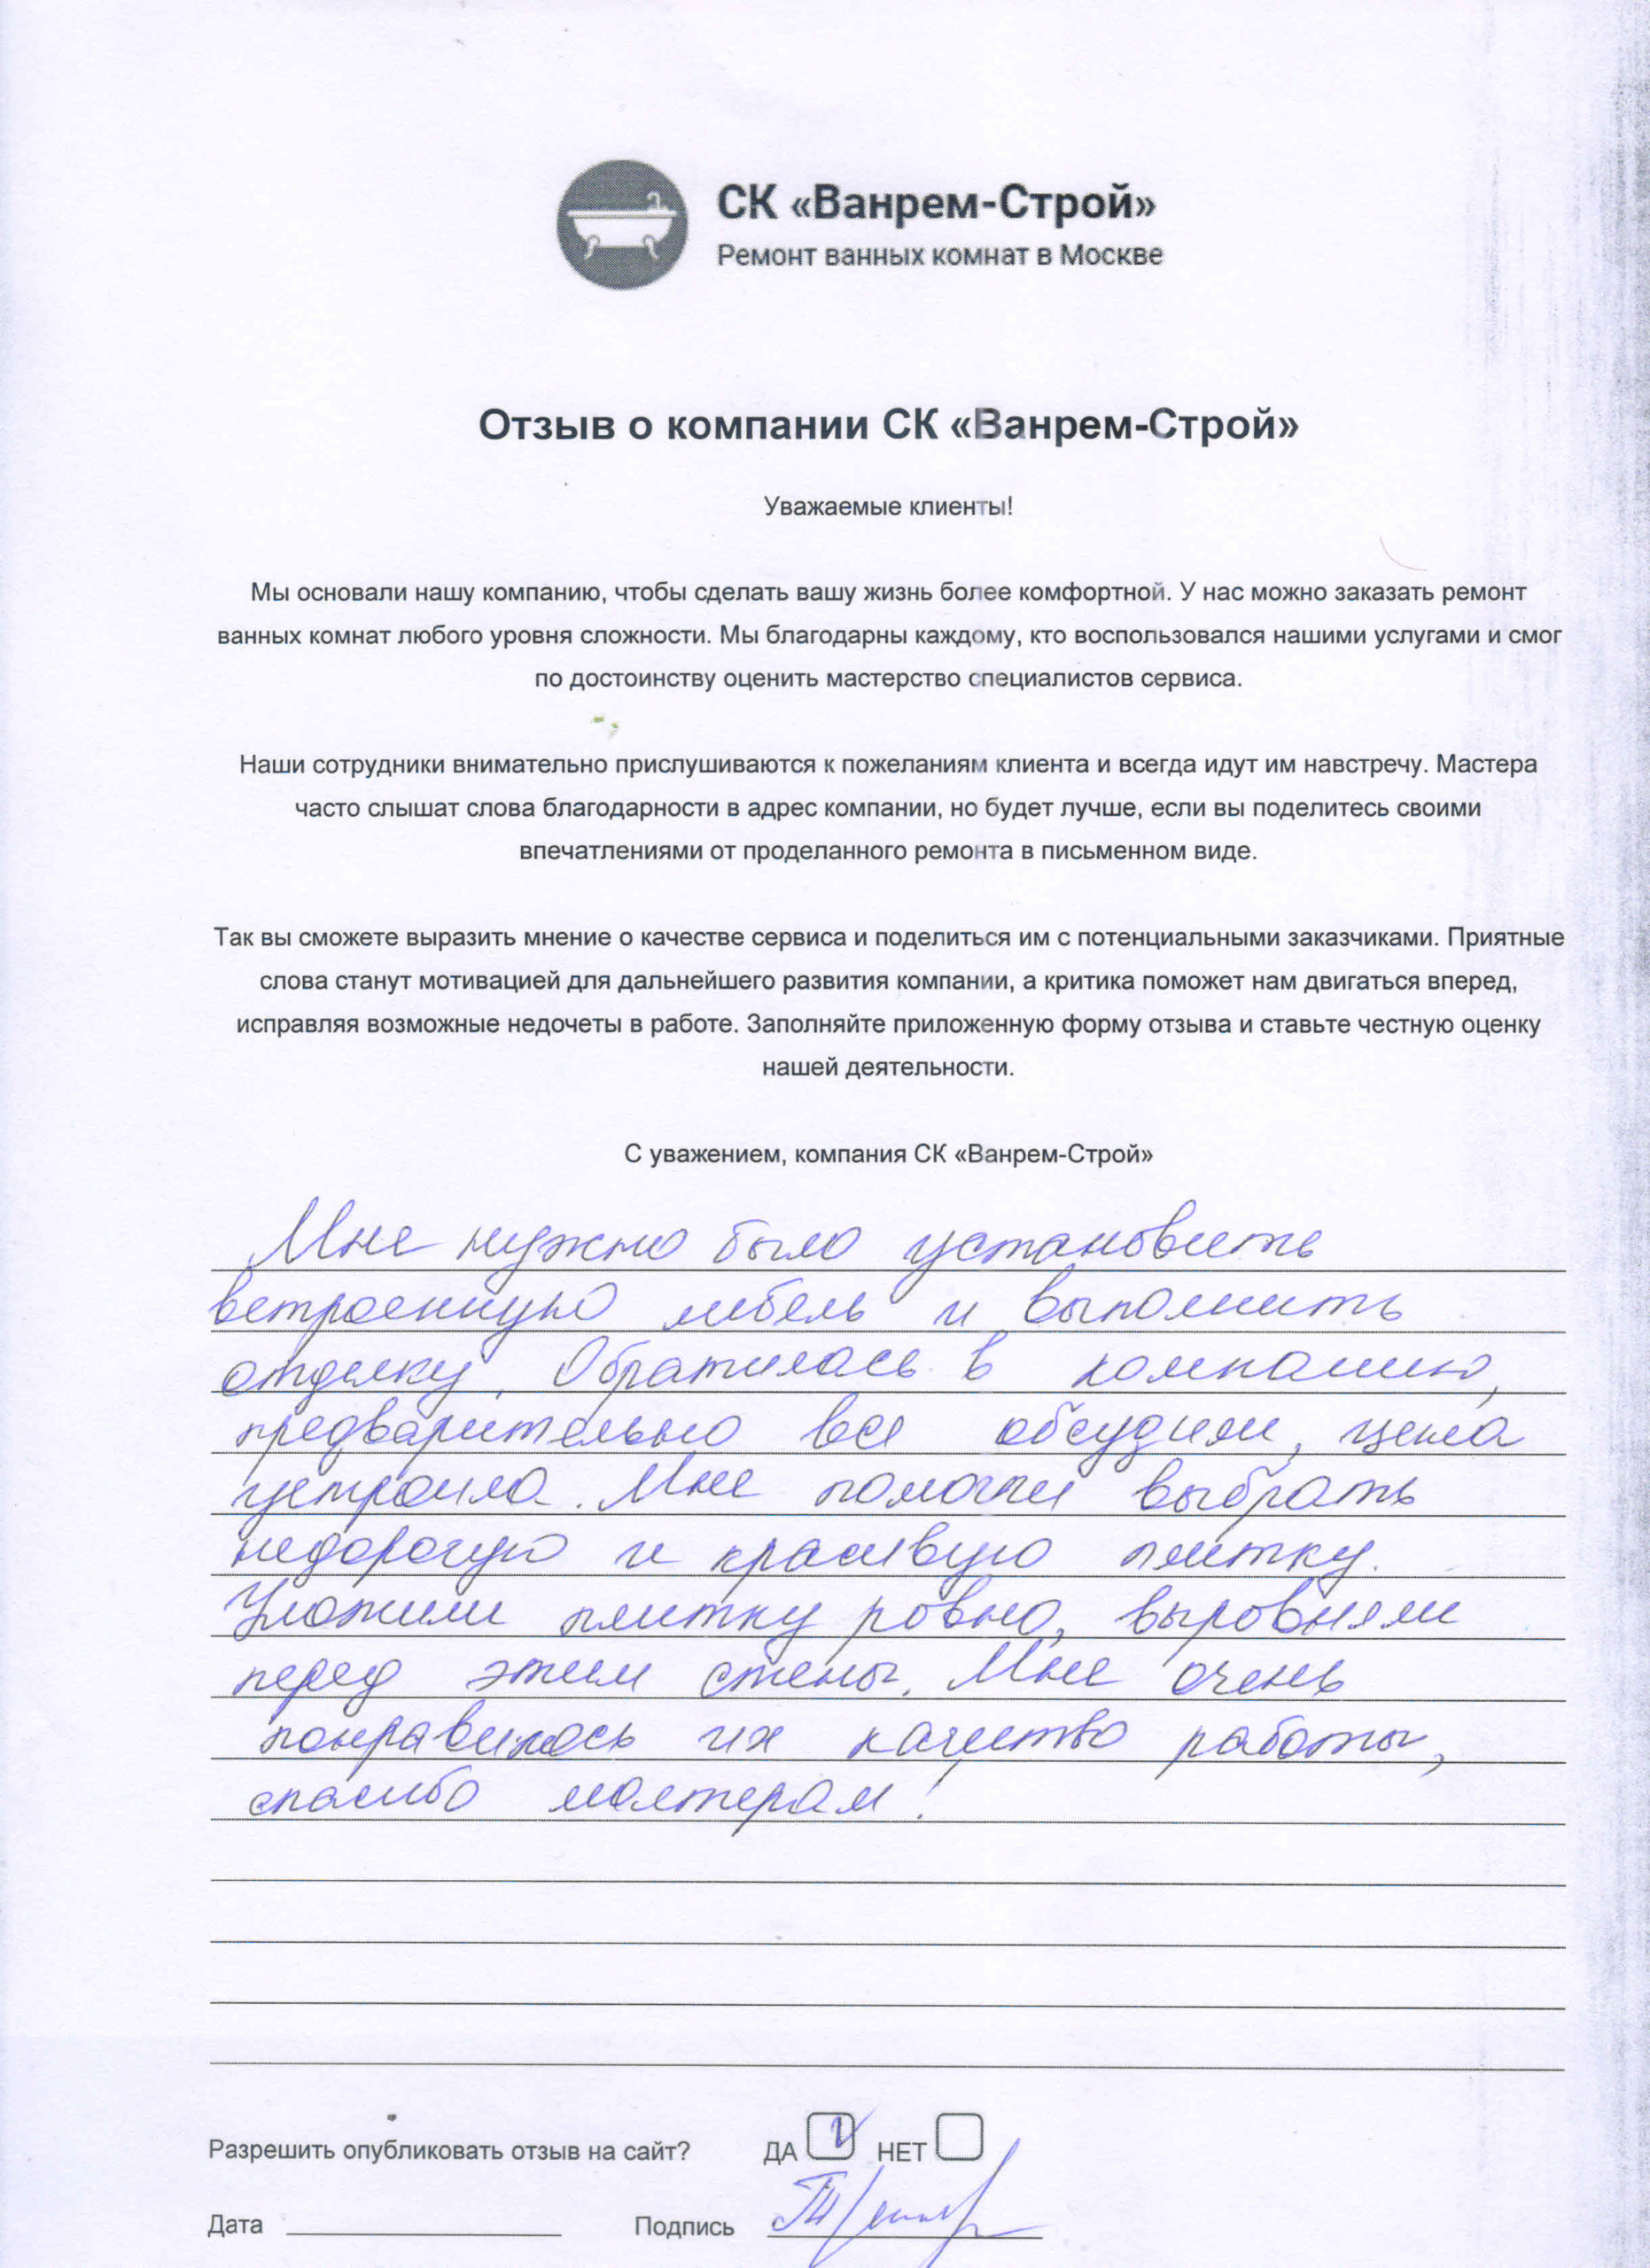 СК «Ванрем-Строй»
Ремонт ванных комнат в Москве
Отзыв о компании СК «Ванрем-Строй»
Уважаемые клиенты!
Мы основали нашу компанию, чтобы сделать вашу жизнь более комфортной. У нас можно заказать ремонт
ванных комнат любого уровня сложности. Мы благодарны каждому, кто воспользовался нашими услугами и смог
по достоинству оценить мастерство специалистов сервиса.
Наши сотрудники внимательно прислушиваются к пожеланиям клиента и всегда идут им навстречу. Мастера
часто слышат слова благодарности в адрес компании, но будет лучше, если вы поделитесь своими
впечатлениями от проделанного ремонта в письменном виде.
Так вы сможете выразить мнение о качестве сервиса и поделиться им с потенциальными заказчиками. Приятные
слова станут мотивацией для дальнейшего развития компании, а критика поможет нам двигаться вперед,
исправляя возможные недочеты в работе. Заполняйте приложенную форму отзыва и ставьте честную оценку
нашей деятельности.
С уважением, компания СК «Ванрем-Строй»
Мне нужно было установить
встроенную мебель и выполнить
отделку. Обратилась в компанию,
предварительно все обсудили, цена
устроила. Мне помогли выбрать
недорогую и красивую плитку.
Уложили плитку ровно, выровняли
перед этим стены. Мне очень
понравилось их качество работы,
спасибо мастерам!
Разрешить опубликовать отзыв на сайт? ДА V НЕТ
Дата Подпись